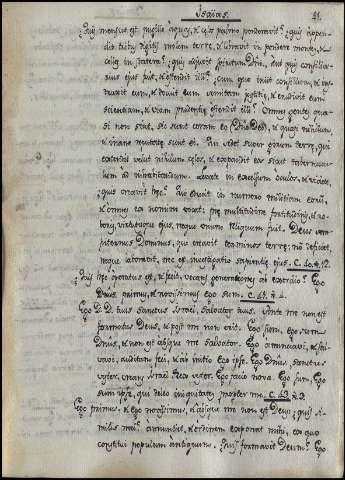 Isaias. 91.
¿Quis mensus est pugillo aquas, & cælos palmo ponderavit? ¿quis appen-
dit tribus digitis molem terræ, & libravit in pondere montes, &
colles in statera? ¿quis adjuvit spiritum Dñi, aut quis consilia-
rius ejus fuit, & ostendit illi? ¿cum quo iniit consilium, & ins-
truxit eum, & docuit eum semitam justitiæ, & erudivit eum
scientiam, & viam prudentiæ ostendit illi? Omnes gentes qua-
si non sint, sic sunt coram eo, & quasi nihilum,
& inane reputatæ sunt ei. qui sedet super gyrum terræ, qui
extendit velut nihilum cælos, & expandit eos sicut tabernacu-
lum ad inhabitandum. Levate in excelsum oculos, & videte,
¿quis creavit hæc? qui educit in numero militiam eorum,
& omnes ex nomine vocat: præ multitudine fortitudinis, & ro-
boris, virtutisque ejus, neque unum reliquum fuit. Deus sem-
piternus Dominus, qui creavit terminos terræ; non deficiet,
neque laborabit, nec est investigatio sapientiæ ejus. C. 40. v. 12.
¿Quis hæc operatus est, & fecit, vocans generationes ab exordio? Ego
Dñus, primus, & novissimus ego sum. C. 41. v. 4.
Ego D. D. tuus Sanctus Israel, Salvator tuus. Ante me non est
formatus Deus, & post me non erit. Ego sum, ego sum
Dñus, & non est absque me salvator. Ego annunciavi, & sal-
vavi, auditum feci, & ab initio ego ipse. Ego Dñus, Sanctus
vester, creans Israel Rex vester. Ego facio nova. Ego sum, Ego
sum ipse, qui deleo iniquitates propter me. C. 43. v. 3.
Ego primus, & ego novissimus, & absque me non est Deus; ¿quis si-
milis mei? annuntiet, & ordinem exponat mihi, ex quo
constitui populum antiquum. ¿Quis formavit Deum? Ego